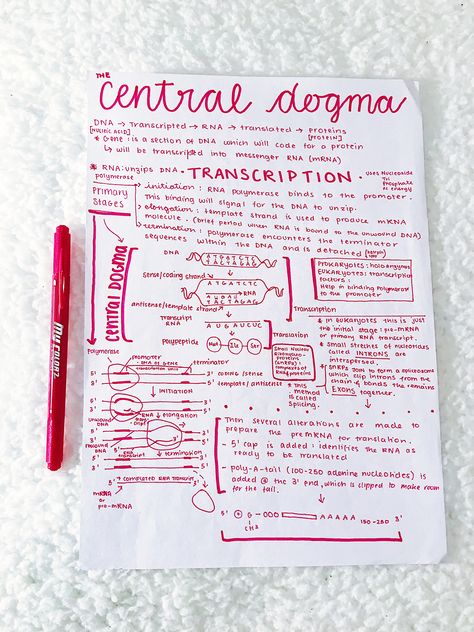 THE
central dogma
DNA → Transcripted → RNA → translated → proteins
[NUCLEIC ACID] [PROTEIN]
* Gene: is a section of DNA which will code for a protein
↳ will be transcripted into messenger RNA (mRNA)
* RNA: unzips DNA
polymerase
• TRANSCRIPTION •
uses Nucleoside
Tri
Phosphate
as energy
Primary
Stages
initiation: RNA polymerase binds to the promoter.
This binding will signal for the DNA to unzip.
elongation: template strand is used to produce mRNA
molecule. (brief period when RNA is bound to the unwound DNA)
termination: polymerase encounters the terminator
sequences within the DNA and is detached
CENTRAL DOGMA
DNA
ATGATCTC
TACTAGAG
sense/coding strand
ATGATCTC
RNA
AUGAU
TACTAGAG
antisense/template strand
Transcription
Transcript
RNA
AUGAUCUC
Translation
polypeptide
Met Ile Ser
PROKARYOTES: holoenzymes
EUKARYOTES: transcription
factors:
Help in binding polymerase
to the promoter
* in EUKARYOTES this is just
the initial stage: pre-mRNA
or primary RNA transcript.
* small stretches of nucleotides
called INTRONS are
interspersed
* snRPS join to form a spliceosome
which clip introns from the
chain & bonds the remains
EXONS together.
Small Nuclear
Ribonucleo-
proteins
(snRPs):
complexes of
RNA & proteins
* This
method is
called
splicing.
polymerase
promoter
DNA of GENE
transcription unit
terminator
5' 3' coding/sense
3' 5' template/antisense
INITIATION
5' 3'
3' 5'
unwound
DNA
RNA
elongation
5' 3'
3' 5'
unwound
DNA
RNA
transcript
termination
5' 3'
3' 5'
5' → completed RNA transcript 3'
mRNA
or
pre-mRNA
Then several alterations are made to
prepare the premRNA for translation.
- 5' cap is added: identifies the RNA as
ready to be translated
- poly-A-tail (100-250 adenine nucleotides) is
added @ the 3' end, which is clipped to make room
for the tail.
5' + G - OOO AAAAA 150-250 3'
CH3